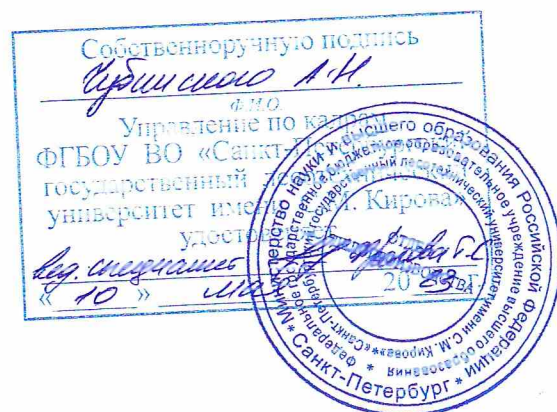 Собственноручную подпись
Чубинского А.Н.
Ф.И.О.
Управление по кадрам
ФГБОУ ВО «Санкт-Петербургский
государственный лесотехнический
университет имени С.М. Кирова»
удостоверяет
Вед. специалист
« 10 » мая 20 23 г.
* Министерство науки и высшего образования Российской Федерации * Санкт-Петербург
* Федеральное государственное бюджетное образовательное учреждение высшего образования
«Санкт-Петербургский государственный лесотехнический университет имени С.М. Кирова» *